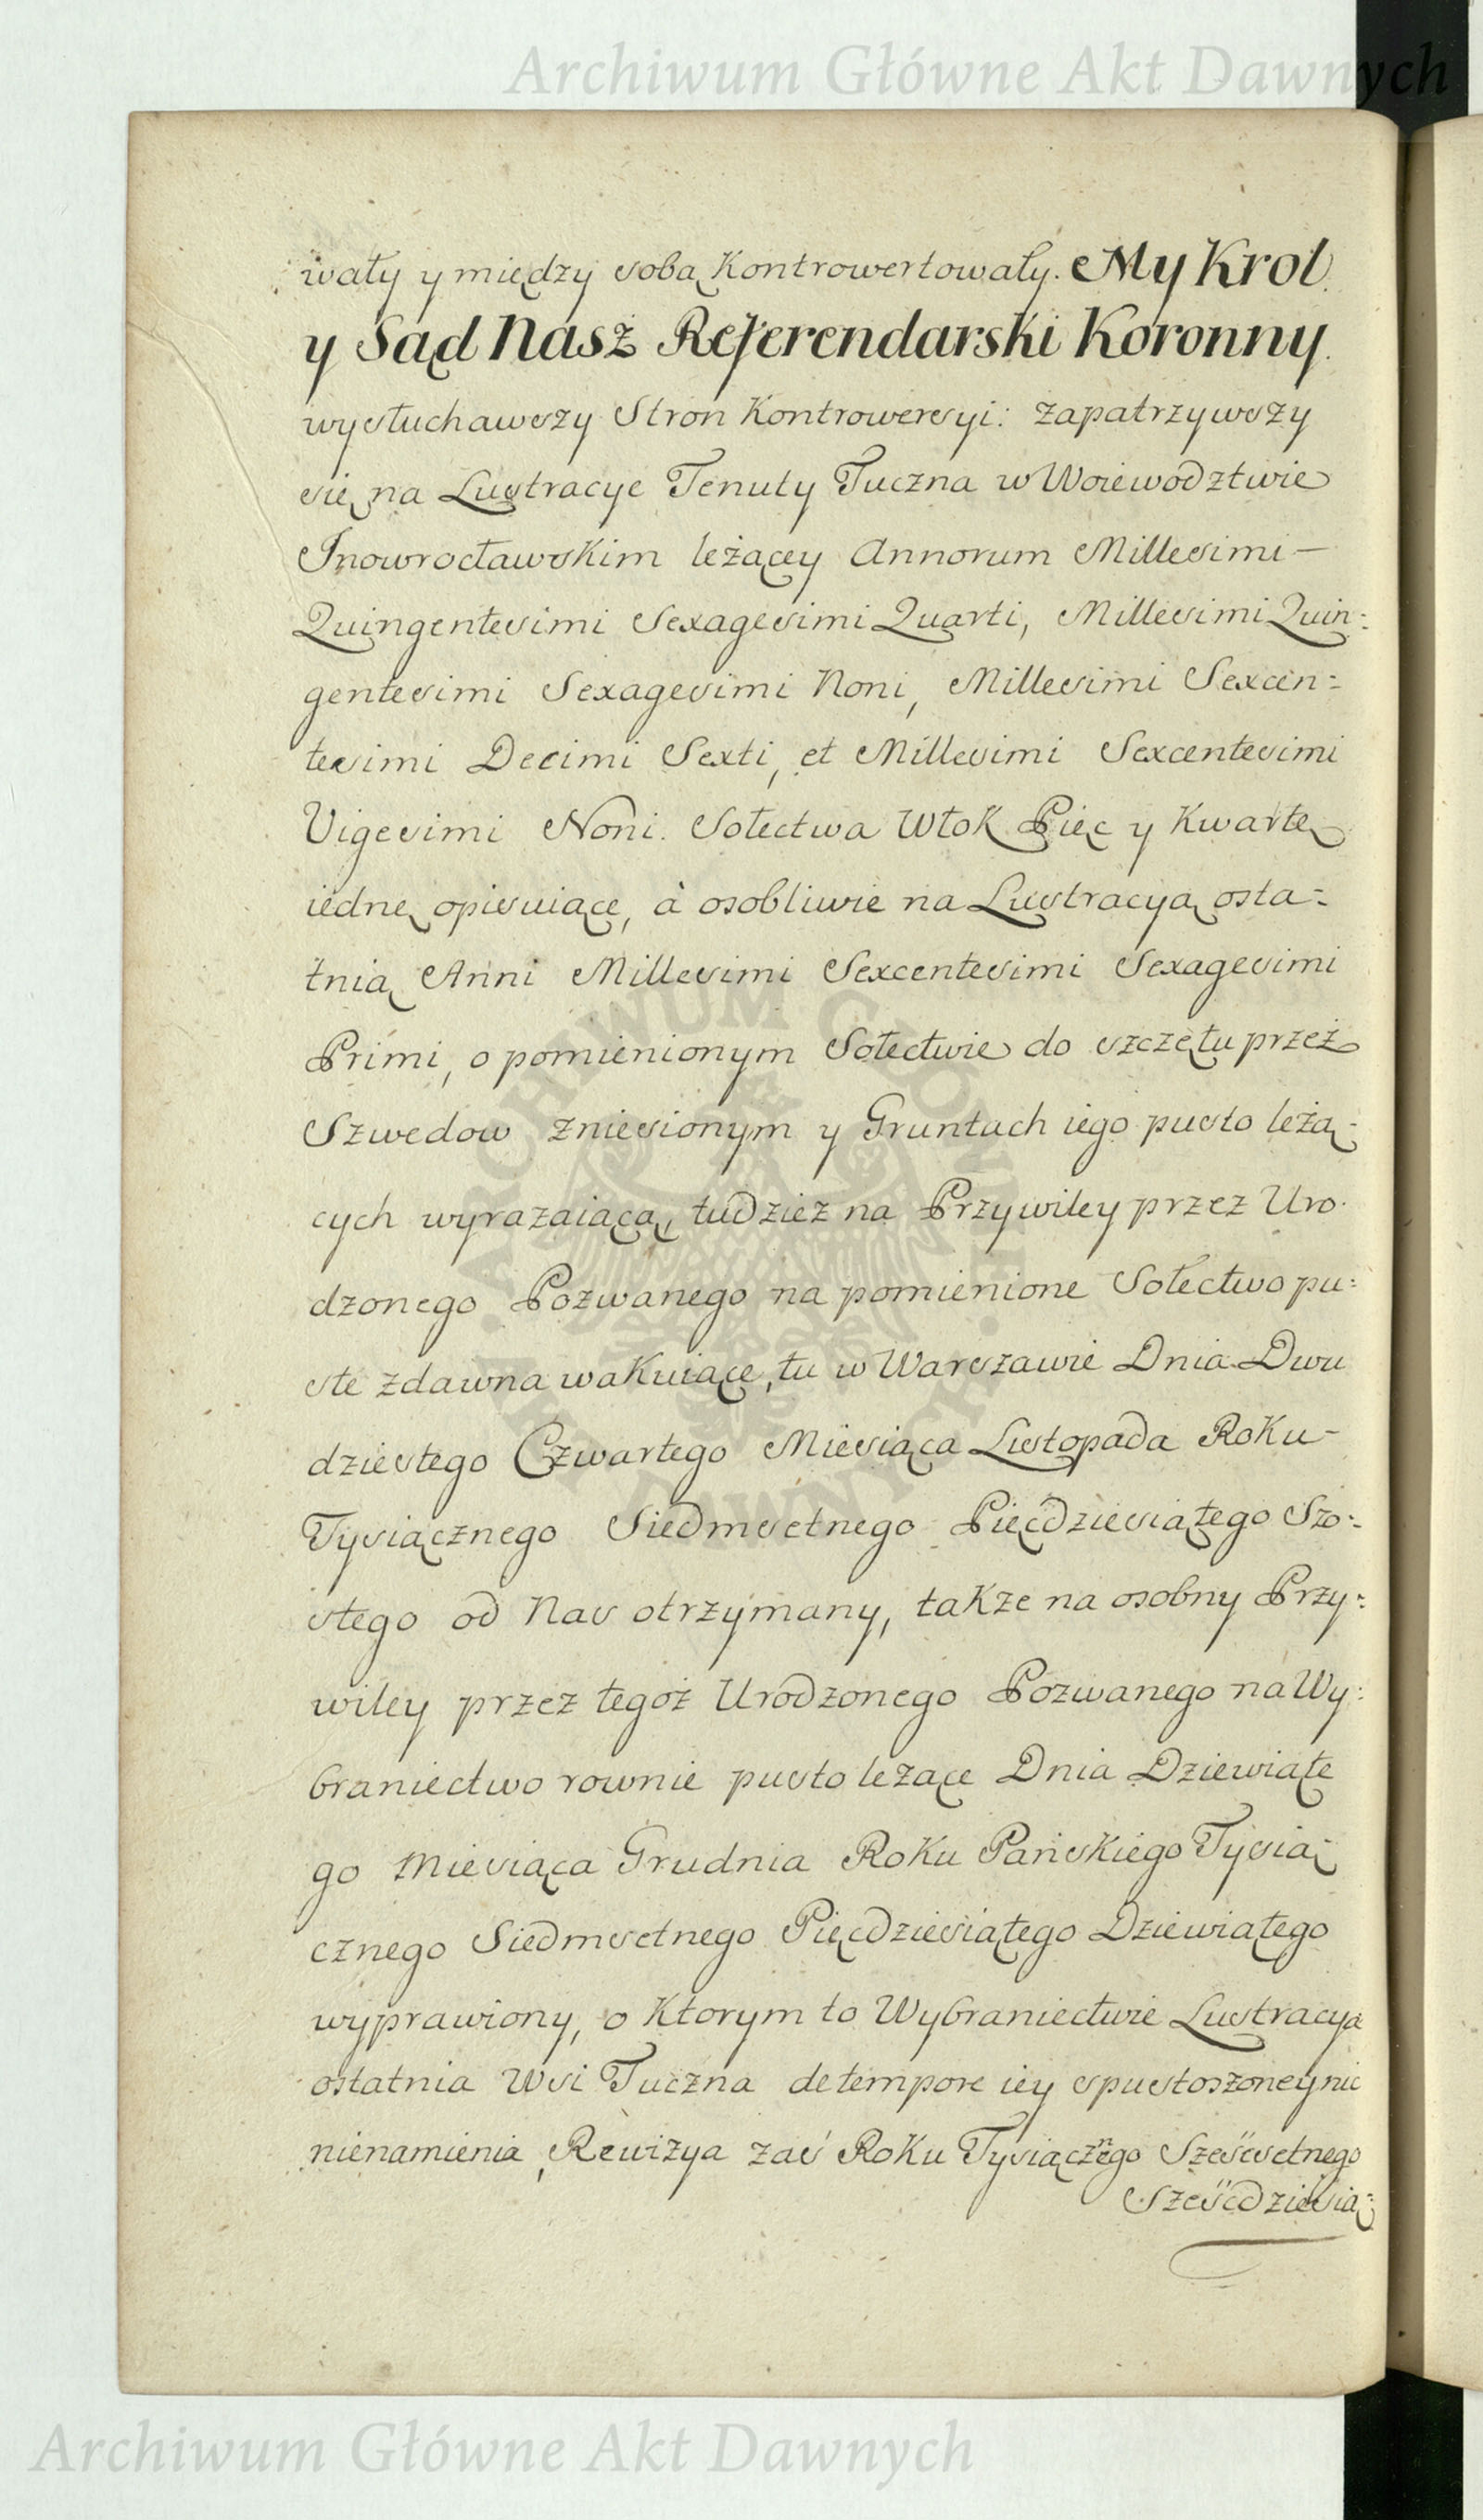 Archiwum Główne Akt Dawnych
wały y między sobą Kontrowertowały. My Krol
y Sąd Nasz Referendarski Koronny
wysłuchawszy Stron Kontrowersyi: zapatrzywszy
się na Lustracye Tenuty Tuczna w Woiewodztwie
Jnowrocławskim leżącey Annorum Millesimi —
Quingentesimi Sexagesimi Quarti, Millesimi Quin:
gentesimi Sexagesimi Noni, Millesimi Sexcen:
tesimi Decimi Sexti, et Millesimi Sexcentesimi
Vigesimi Noni. Sołectwa Włok Pięc y Kwartę
iednę opisuiące, à osobliwie na Lustracyą osta:
tnią Anni Millesimi Sexcentesimi Sexagesimi
Primi, o pomienionym Sołectwie do szczętu przeż
Szwedow zniesionym y Gruntach iego pusto leżą:
cych wyrazaiącą, tudziez na Przywiley przez Uro.
dzonego Pozwanego na pomienione Sołectwo pu:
ste zdawna wakuiące, tu w Warszawie Dnia Dwu
dziestego Czwartego Miesiąca Listopada Roku -
Tysiącznego Siedmsetnego Pięcdziesiątego Szo:
stego od Nas otrzymany, takze na osobny Przy:
wiley przez tegoż Urodzonego Pozwanego na Wy:
braniectwo rownie pusto lezące Dnia Dziewiąte
go Miesiąca Grudnia Roku Pańskiego Tysią:
cznego Siedmsetnego Pięcdziesiątego Dziewiątego
wyprawiony, o Ktorym to Wybraniectwie Lustracya
ostatnia Wsi Tuczna de tempore iey spustoszoney nic
nienamienia, Rewizya zaś Roku Tysiącznego Sześcsetnego
Sześcdziesią:
ARCHIWUM GŁÓWNE AKT DAWNYCH
Archiwum Główne Akt Dawnych